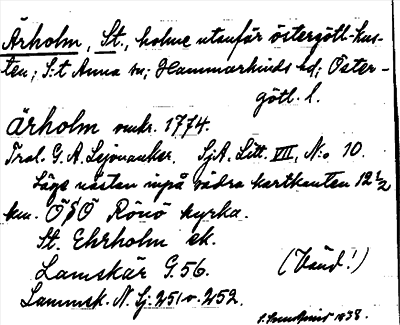 Ärholm, St., holme utanför östergötl-kus-
ten; S:t Anna sn; Hammarkinds hd; Öster-
götl. l.
Ärholm omkr. 1774.
Trol. G. A. Lejonanker. SjA. Litt. VII, N:o 10.
Läge nästan inpå södra kartkanten 12 1/2
km. ÖSÖ Rönö kyrka.
St. Ehrholm ek.
Lamskär G. 56. (Vänd!)
Lammsk. N. Sj. 251 o. 252.
1938.